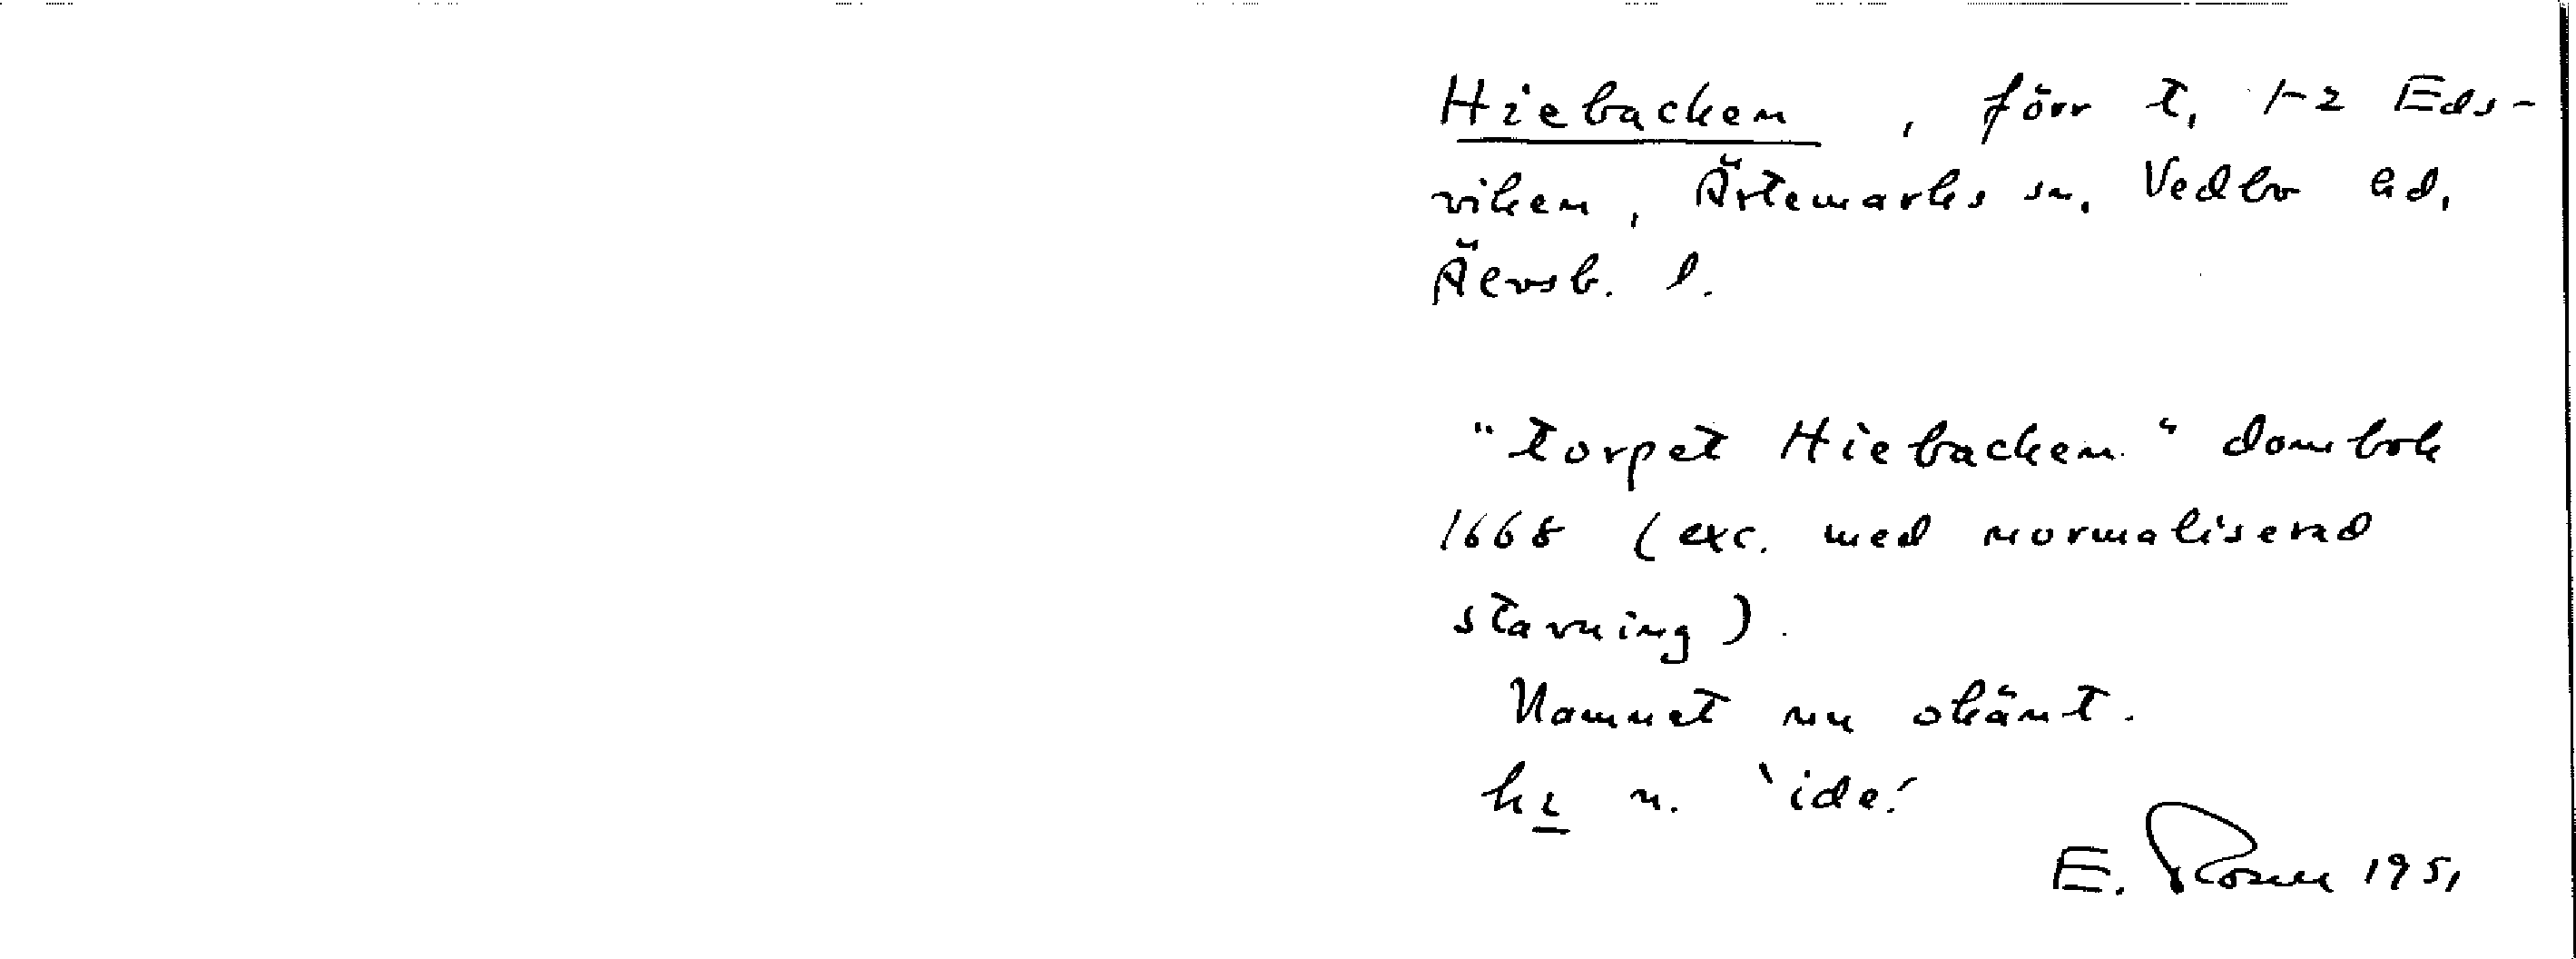 Hiebacken, förr t, 1-2 Eds-
viken, Ärtemarks sn. Vedbo hd,
Älvsb. l.
"torpet Hiebacken" dombok
1668 (exc. med normaliserad
stavning).
Namnet nu okänt.
hi n. 'ide'.
E. Rosell 1951